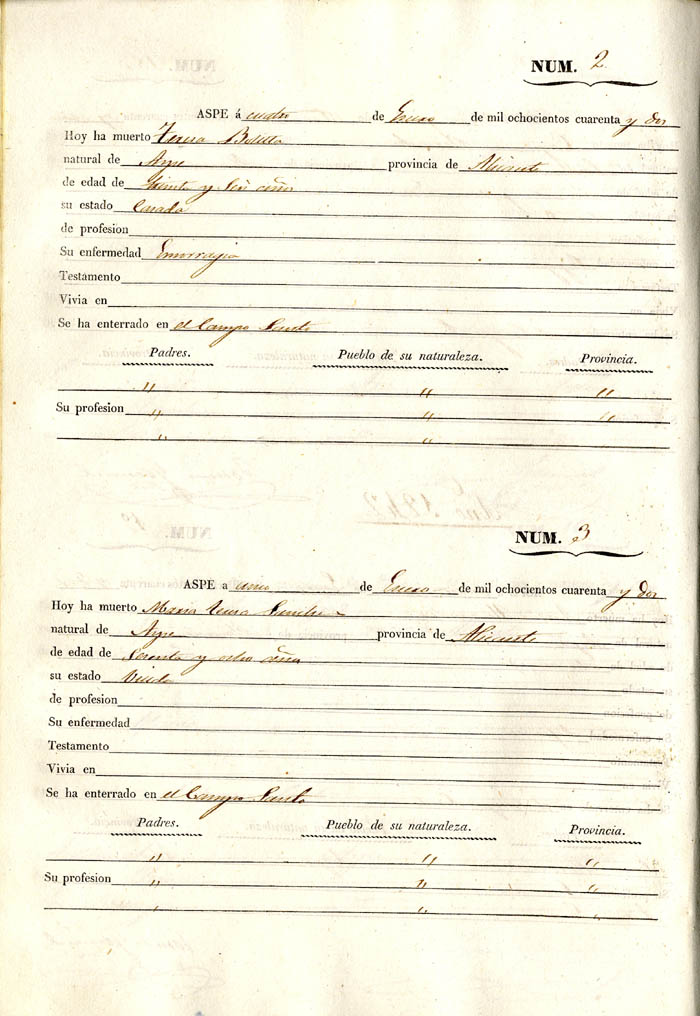 NUM. 2
ASPE á cuatro de Enero de mil ochocientos cuarenta y dos
Hoy ha muerto Teresa Botella
natural de Aspe provincia de Alicante
de edad de treinta y seis años
su estado Casada
de profesion
Su enfermedad Emorragia
Testamento
Vivia en
Se ha enterrado en el Campo Santo
Padres. Pueblo de su naturaleza. Provincia.
" " "
Su profesion " " "
" "
NUM. 3
ASPE a de Enero de mil ochocientos cuarenta y dos
Hoy ha muerto Maria Teresa Sanchez
natural de Aspe provincia de Alicante
de edad de Sesenta y ocho años
su estado Viuda
de profesion
Su enfermedad
Testamento
Vivia en
Se ha enterrado en el Campo Santo
Padres. Pueblo de su naturaleza. Provincia.
" " "
Su profesion " " "
" " "